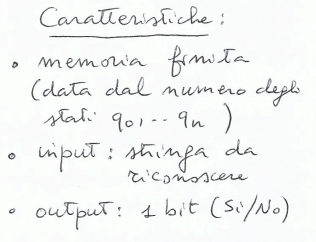 Caratteristiche:
• memoria finita
(data dal numero degli
stati q0, -- qn )
• input: stringa da
riconoscere
• output: 1 bit (Sì/No)